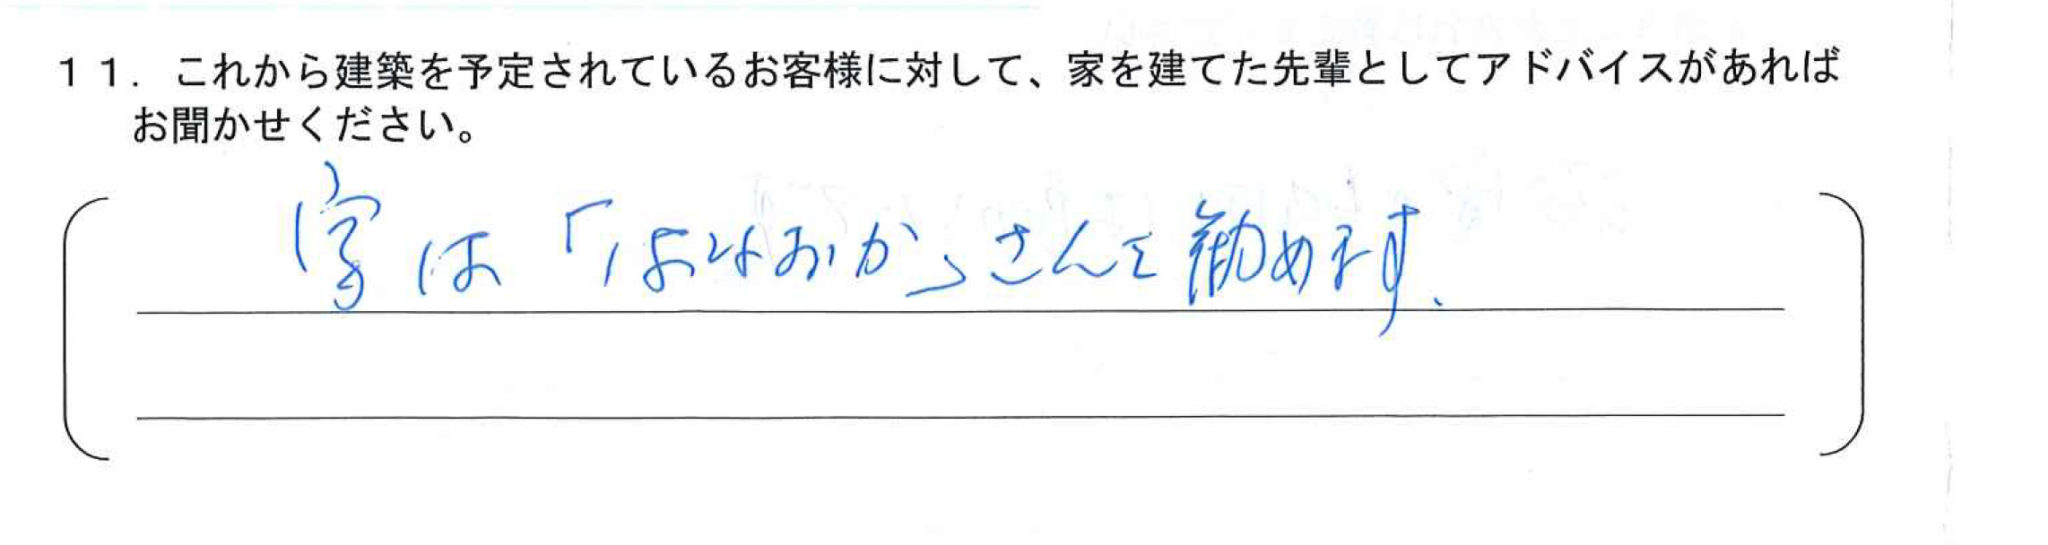 11．これから建築を予定されているお客様に対して、家を建てた先輩としてアドバイスがあれば
お聞かせください。
家は「はなおか」さんを勧めます．